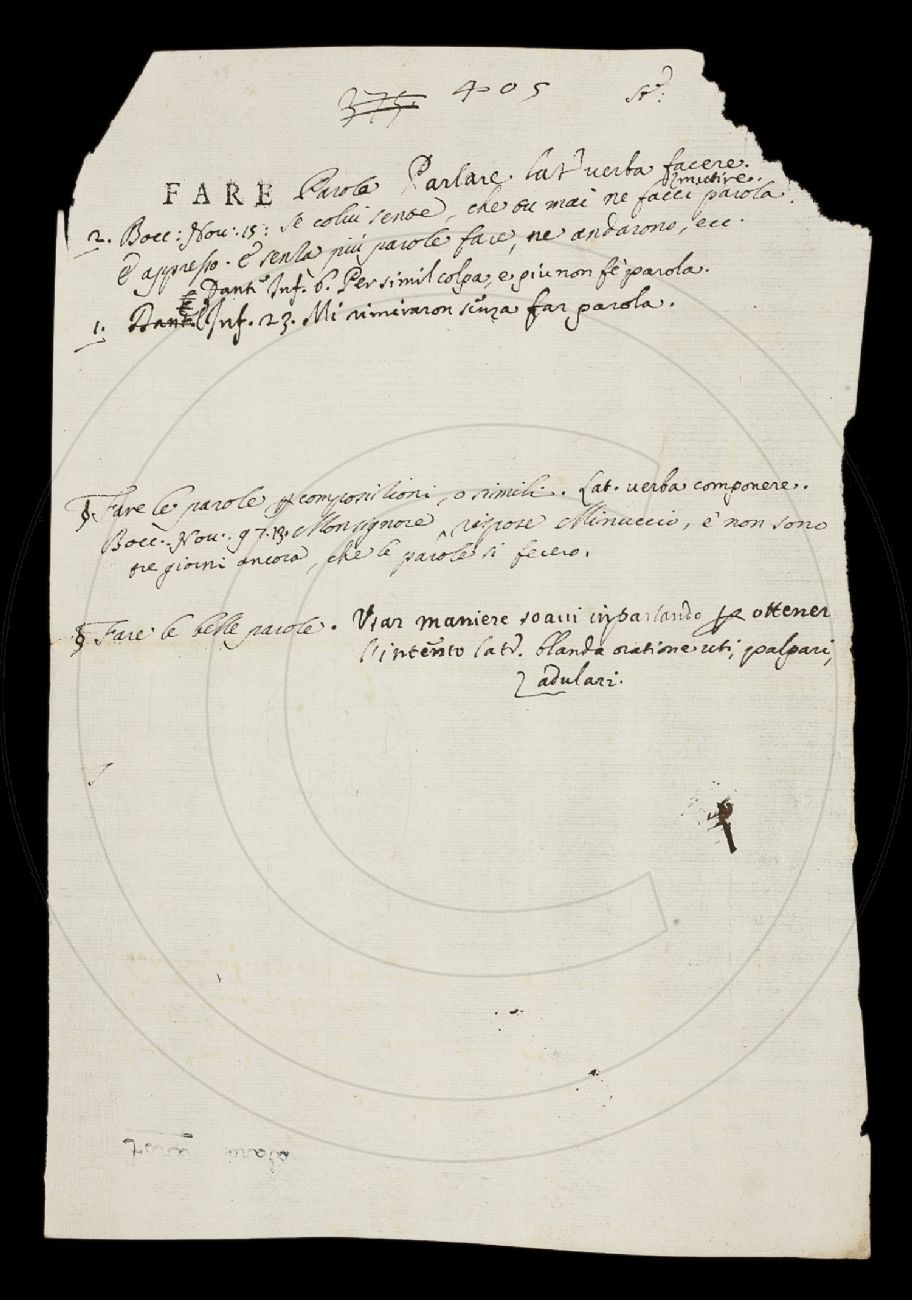 375. 405 St.:
FARE Parola Parlare. lat. verba facere.
mutire.
2. Bocc: Nov: 15: Se colui sente, che tu mai ne facci parola.
E appresso. E senza più parole fare, ne andarono, ecc.
Dant. Inf. 6. Per simil colpa, e piu non fe parola.
1. Dant. E Inf. 23. Mi rimiraron senza far parola.
§ Fare le parole p composizioni, o simili. Lat. verba componere.
Bocc. Nov. 97. 13. Monsignore, rispose Minuccio, e' non sono
tre giorni ancora, che le parole si fecero.
§ Fare le belle parole. Usar maniere soavi in parlando p ottener
l'intento lat. blanda oratione uti, palpari,
adulari.